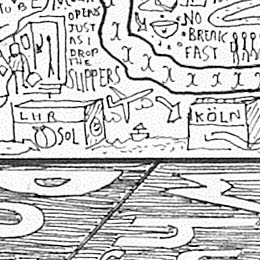 OPENS
JUST
AS I
DROP
THE
SLIPPERS
NO
BREAK
FAST
LHR
SOL
KÖLN